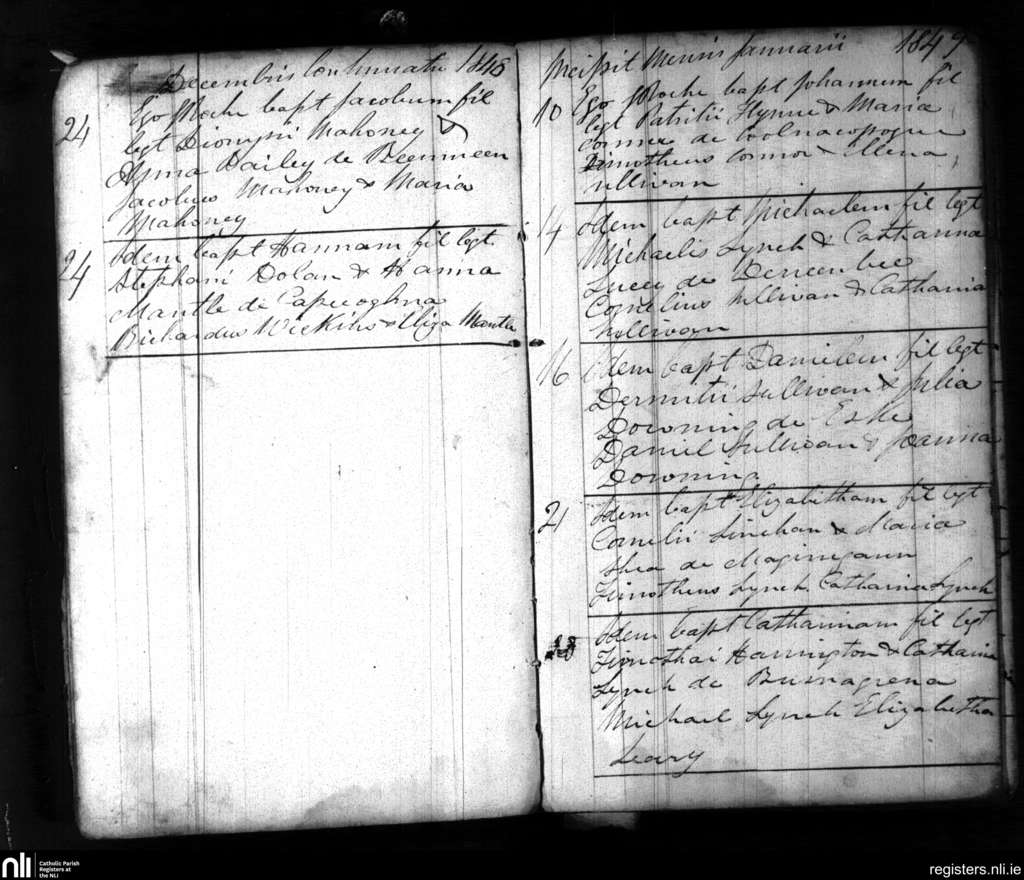 Decembris Continuatu 1848
24 Ego Roche bapt Jacobum fil
lgt Dionysii Mahoney &
Anna Dailey de
Jacobus Mahoney & Maria
Mahoney
24 Idem bapt Hannam fil lgt
Stephani Dolan & Hanna
Mantle de
Richardus & Eliza Mantle
Mensis Januarii 1849
10 Ego Roche bapt Johannem fil
lgt Patritii Flynne & Maria
Connor de
Timotheus Connor & Ellena
Sullivan
14 Idem bapt Michaelem fil lgt
Michaelis Lynch & Catharina
Lucey de
Cornelius Sullivan & Catharina
Sullivan
16 Idem bapt Danielem fil lgt
Dermitii Sullivan & Julia
Downing de Eske
Daniel Sullivan & Joanna
Downing
21 Idem bapt Elizabetham fil lgt
Cornelii Linehan & Maria
Shea de
Timotheus Lynch Catharina Lynch
Idem bapt Catharinam fil lgt
Timothai Harrington & Catharina
Lynch de
Michael Lynch Elizabetha
Leary
nli Catholic Parish
Registers at
the NLI
registers.nli.ie